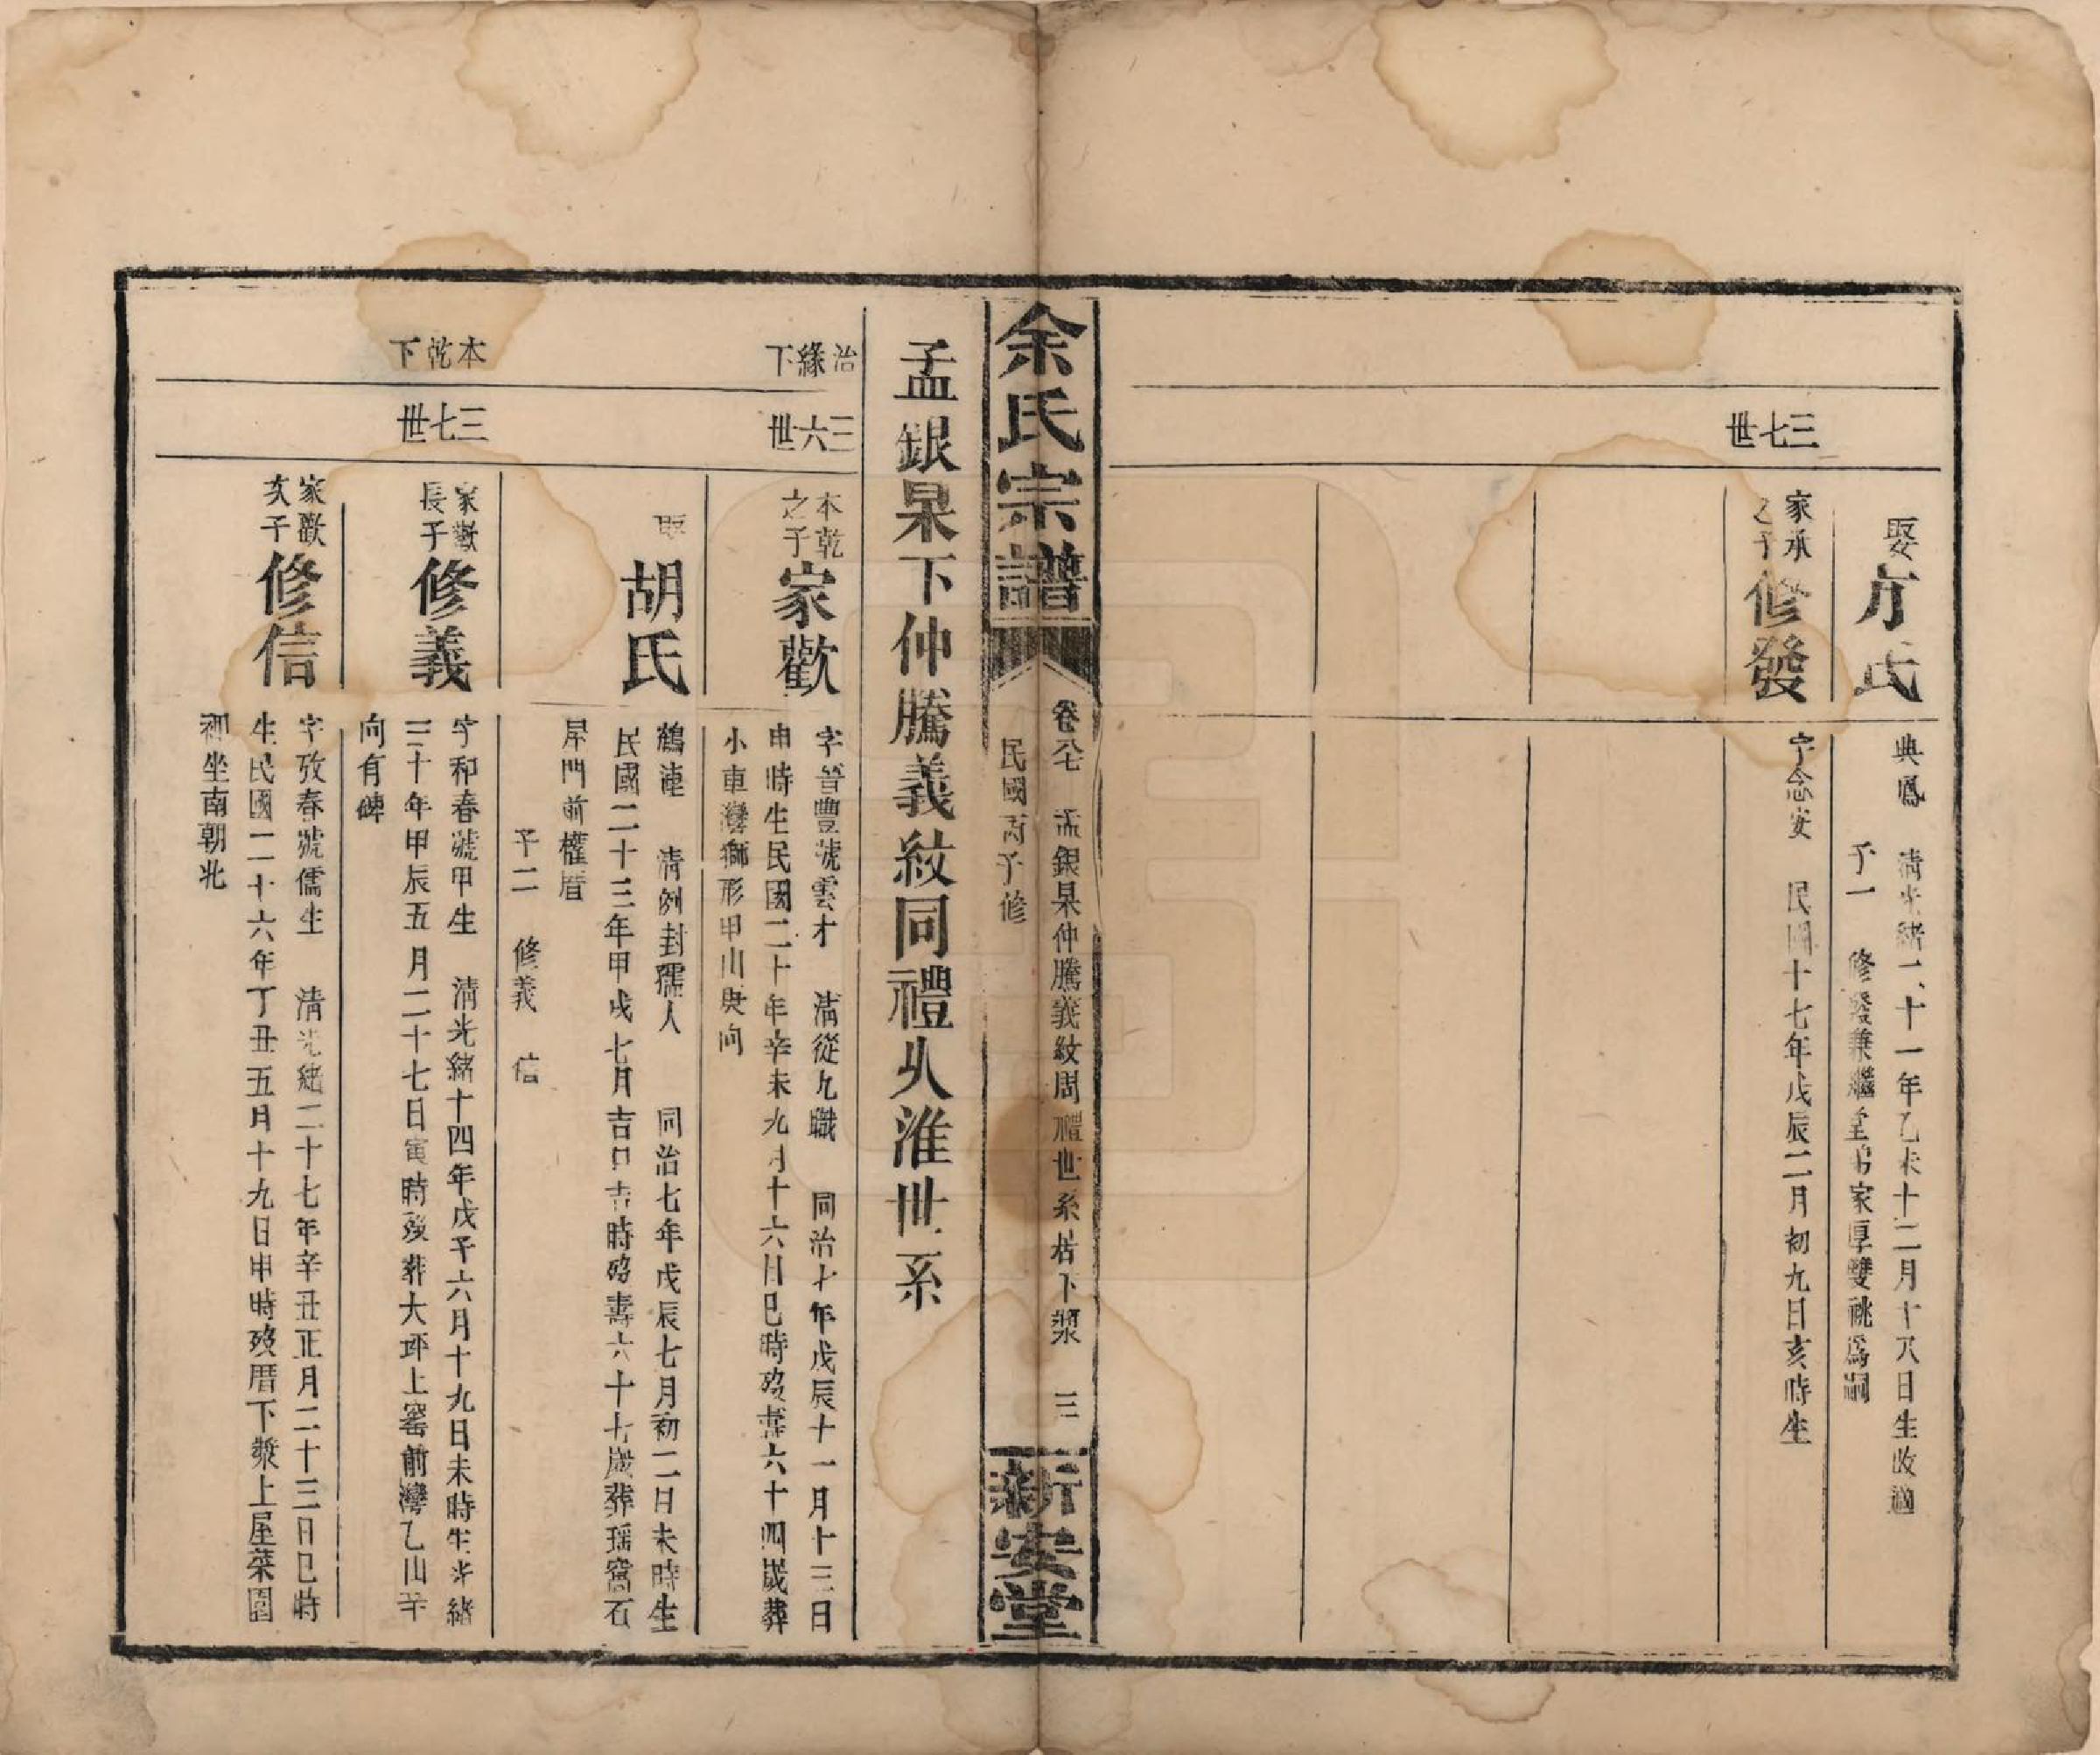 三七世
娶
氏
典鳳　清光緒二十一年乙未十二月十八日生改適
子一　修發兼繼堂弟家厚雙祧爲嗣
家承
之子
修發
字念安　民國十七年戊辰二月初九日亥時生
余氏宗譜
卷八七　孟銀杲仲騰義紋周禮世系枯下漿　三
民國丙子修
新安堂
孟銀杲下仲騰義紋同禮火淮世系
治緣下
三六世
本乾
之子
家歡
字晉豐號雲才　清從九職　同治七年戊辰十一月十三日
申時生民國二十年辛未九月十六日巳時歿壽六十四歲葬
小車灣獅形甲山庚向
娶
胡氏
鶴連　清例封孺人　同治七年戊辰七月初二日未時生
民國二十三年甲戌七月吉日吉時歿壽六十七歲葬瑤窩石
屏門前權厝
子二　修義　信
本乾下
三七世
家歡
長子
修義
字和春號甲生　清光緒十四年戊子六月十九日未時生光緒
三十年甲辰五月二十七日寅時歿葬大坪上窰前灣乙山辛
向有碑
家歡
次子
修信
字孜春號儒生　清光緒二十七年辛丑正月二十三日巳時
生民國二十六年丁丑五月十九日申時歿厝下漿上屋菜園
裡坐南朝北